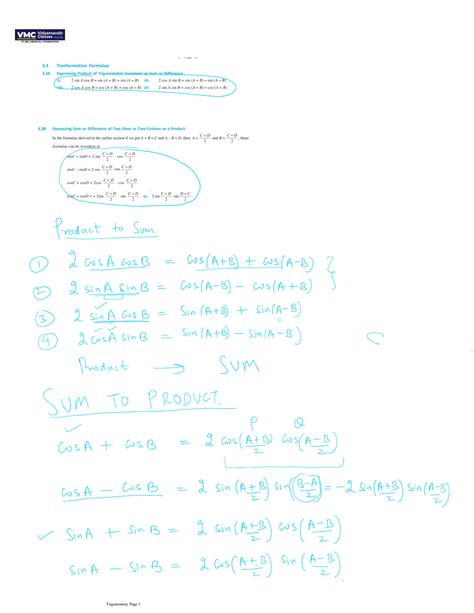 VMC Vidyamandir Classes
3.5 Tranformation Formulae
3.5A Expressing Product of Trigonometric Functions as Sum or Difference
(i) 2 sin A cos B = sin (A + B) + sin (A − B) (ii) 2 cos A sin B = sin (A + B) − sin (A − B)
2 cos A cos B = cos (A + B) + cos (A − B) 2 sin A sin B = cos (A − B) − cos (A + B)
Expressing Sum or Difference of Two Sines or Two Cosines as a Product
In the formulae derived in the earlier section if we put A + B = C and A − B = D, then A = (C + D)/2 and B = (C − D)/2, these
formulae can be rewritten as
sinC + sinD = 2 sin (C + D)/2 . cos (C − D)/2
sinC − sinD = 2 sin (C − D)/2 . cos (C + D)/2
cosC + cosD = 2cos (C + D)/2 . cos (C − D)/2
cosC − cosD = − 2sin (C + D)/2 . sin (C − D)/2 or 2 sin (C + D)/2 . sin (D − C)/2
Product to Sum
① 2 cosA cosB = cos(A+B) + cos(A-B)
② 2 sinA sinB = cos(A-B) - cos(A+B)
③ 2 sinA cosB = Sin(A+B) + sin(A-B)
④ 2 cosA sinB = Sin(A+B) - Sin(A-B)
Product → SUM
SUM TO PRODUCT.
P Q
cosA + cosB = 2 cos(A+B)/2 cos(A-B)/2
cosA - cosB = 2 sin(A+B)/2 sin(B-A)/2 = -2 sin(A+B)/2 sin(A-B)/2
SinA + Sin B = 2 sin(A+B)/2 cos(A-B)/2
SinA - Sin B = 2 cos(A+B)/2 sin(A-B)/2
Trigonometry Page 1